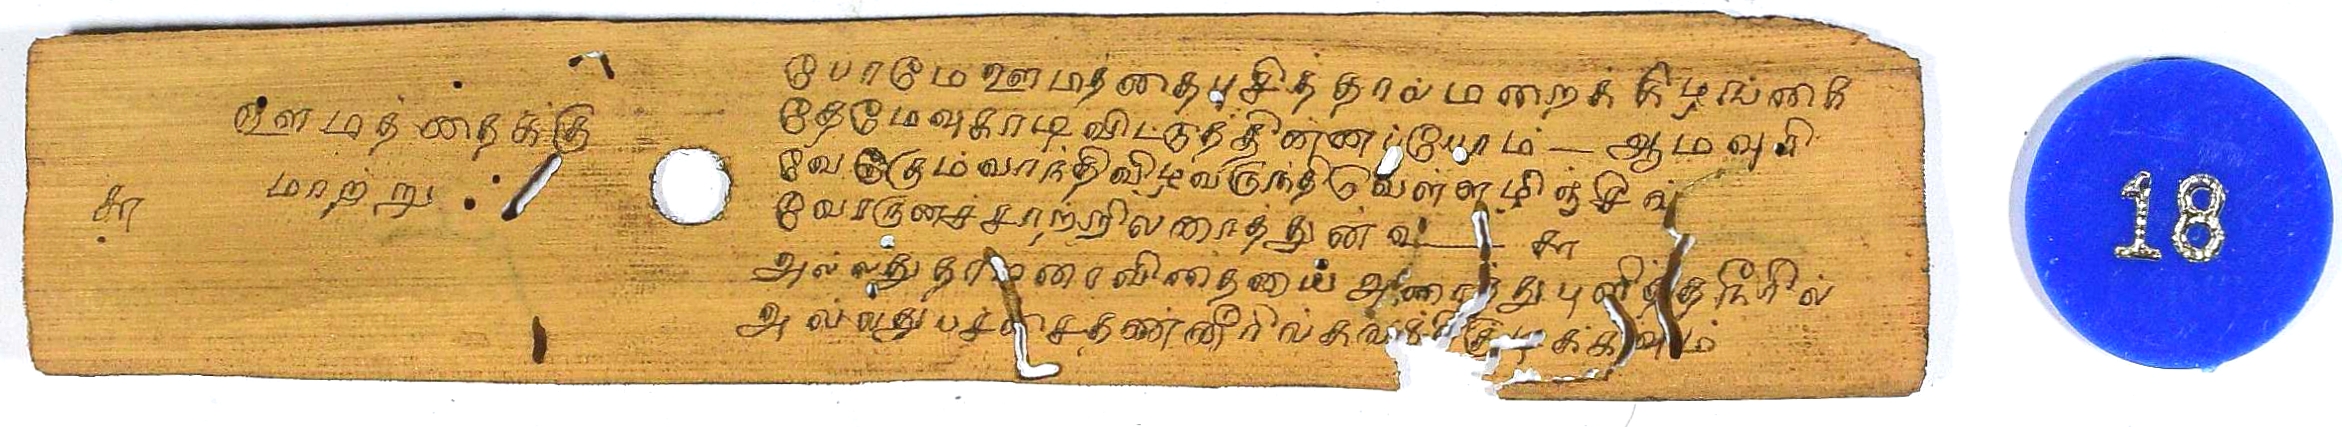 ஊமத்தைக்கு
மாற்று
கா
போமே ஊமத்தை புசித்தால் மறைக் கிழங்கை
தேமேவுகாடி விட்டுத் தின்னப்போம் — ஆமவுரி
வேகும் வாந்தி விழ வருந்திடு வெள்ளழிஞ்சில்
வேரருனச் சாற்றிலரைத்துன் — கா
அல்லது தாமரை விதையை அரைத்து புளித்த நீரில்
அல்லது பச்சை தண்ணீரில் குடிக்கவும்
18